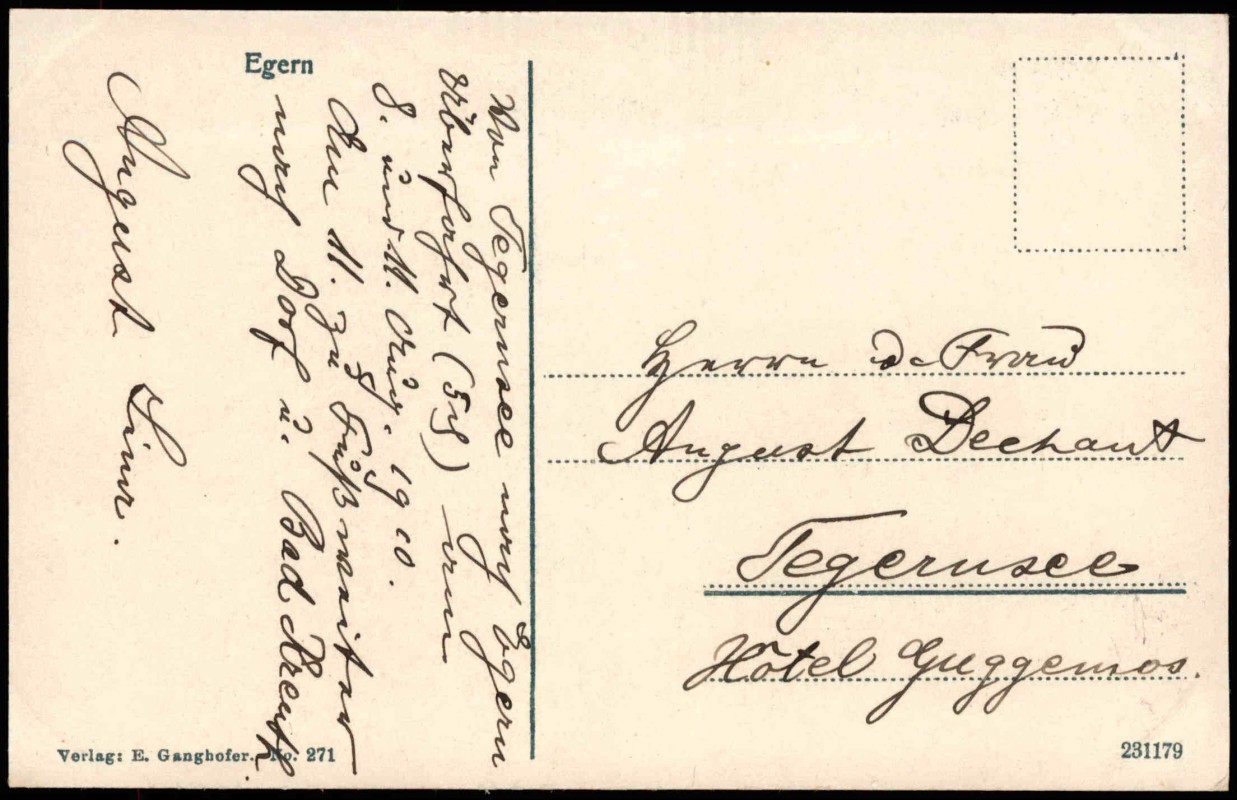 Egern
Von Tegernsee nach Egern
Überfahrt (Ey) am
8. und 11. Aug. 1910.
Am 11. zu Fuß weiter
nach Dorf u. Bad Kreuth.
August
Herrn u. Frau
August Dechant
Tegernsee
Hôtel Guggemos.
Verlag: E. Ganghofer. No. 271
231179